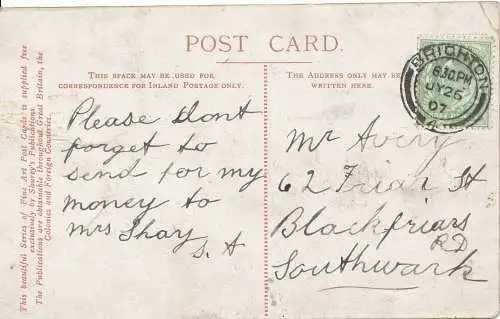 POST CARD.
THIS SPACE MAY BE USED FOR
CORRESPONDENCE FOR INLAND POSTAGE ONLY.
THE ADDRESS ONLY MAY BE
WRITTEN HERE.
BRIGHTON
6.30PM
JY 26
07
This beautiful Series of Fine Art Post Cards is supplied free
exclusively by Shurey's Publications.
The Publications are obtainable throughout Great Britain, the
Colonies and Foreign Countries.
Please Dont
forget to
send for my
money to
Mrs Shay
S. A
Mr Avery
62 Friar St
Blackfriars
RD
Southwark